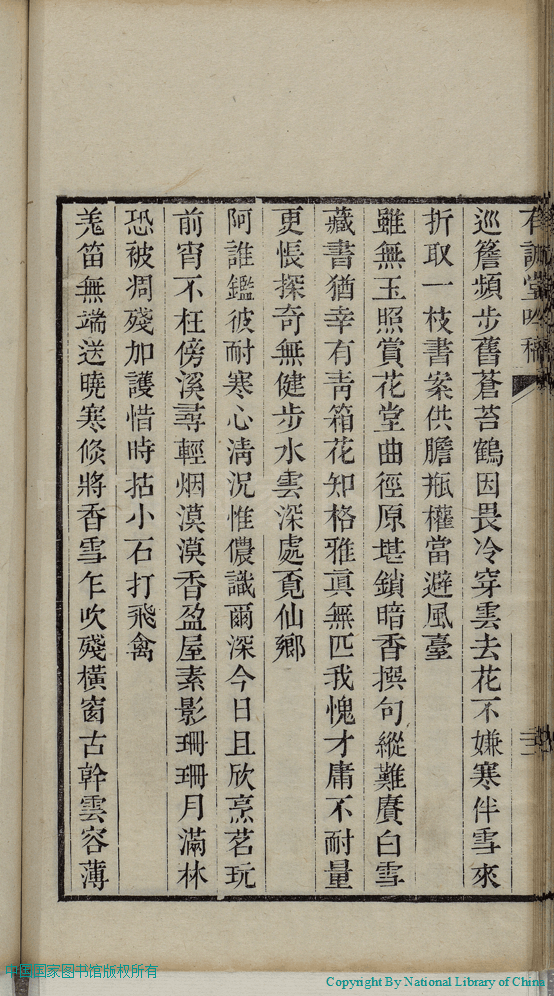 有誠堂吟稿
巡簷頻步舊蒼苔鶴因畏冷穿雲去花不嫌寒伴雪來
折取一枝書案供膽瓶權當避風臺
雖無玉照賞花堂曲徑原堪鎖暗香撰句縱難賡白雪
藏書猶幸有靑箱花知格雅眞無匹我愧才庸不耐量
更悵探奇無健步水雲深處覓仙鄉
阿誰鑑彼耐寒心淸況惟儂識爾深今日且欣烹茗玩
前宵不枉傍溪尋輕烟漠漠香盈屋素影珊珊月滿林
恐被凋殘加護惜時拈小石打飛禽
羗笛無端送曉寒倏將香雪乍吹殘橫窗古幹雲容薄
中国国家图书馆版权所有
Copyright By National Library of China